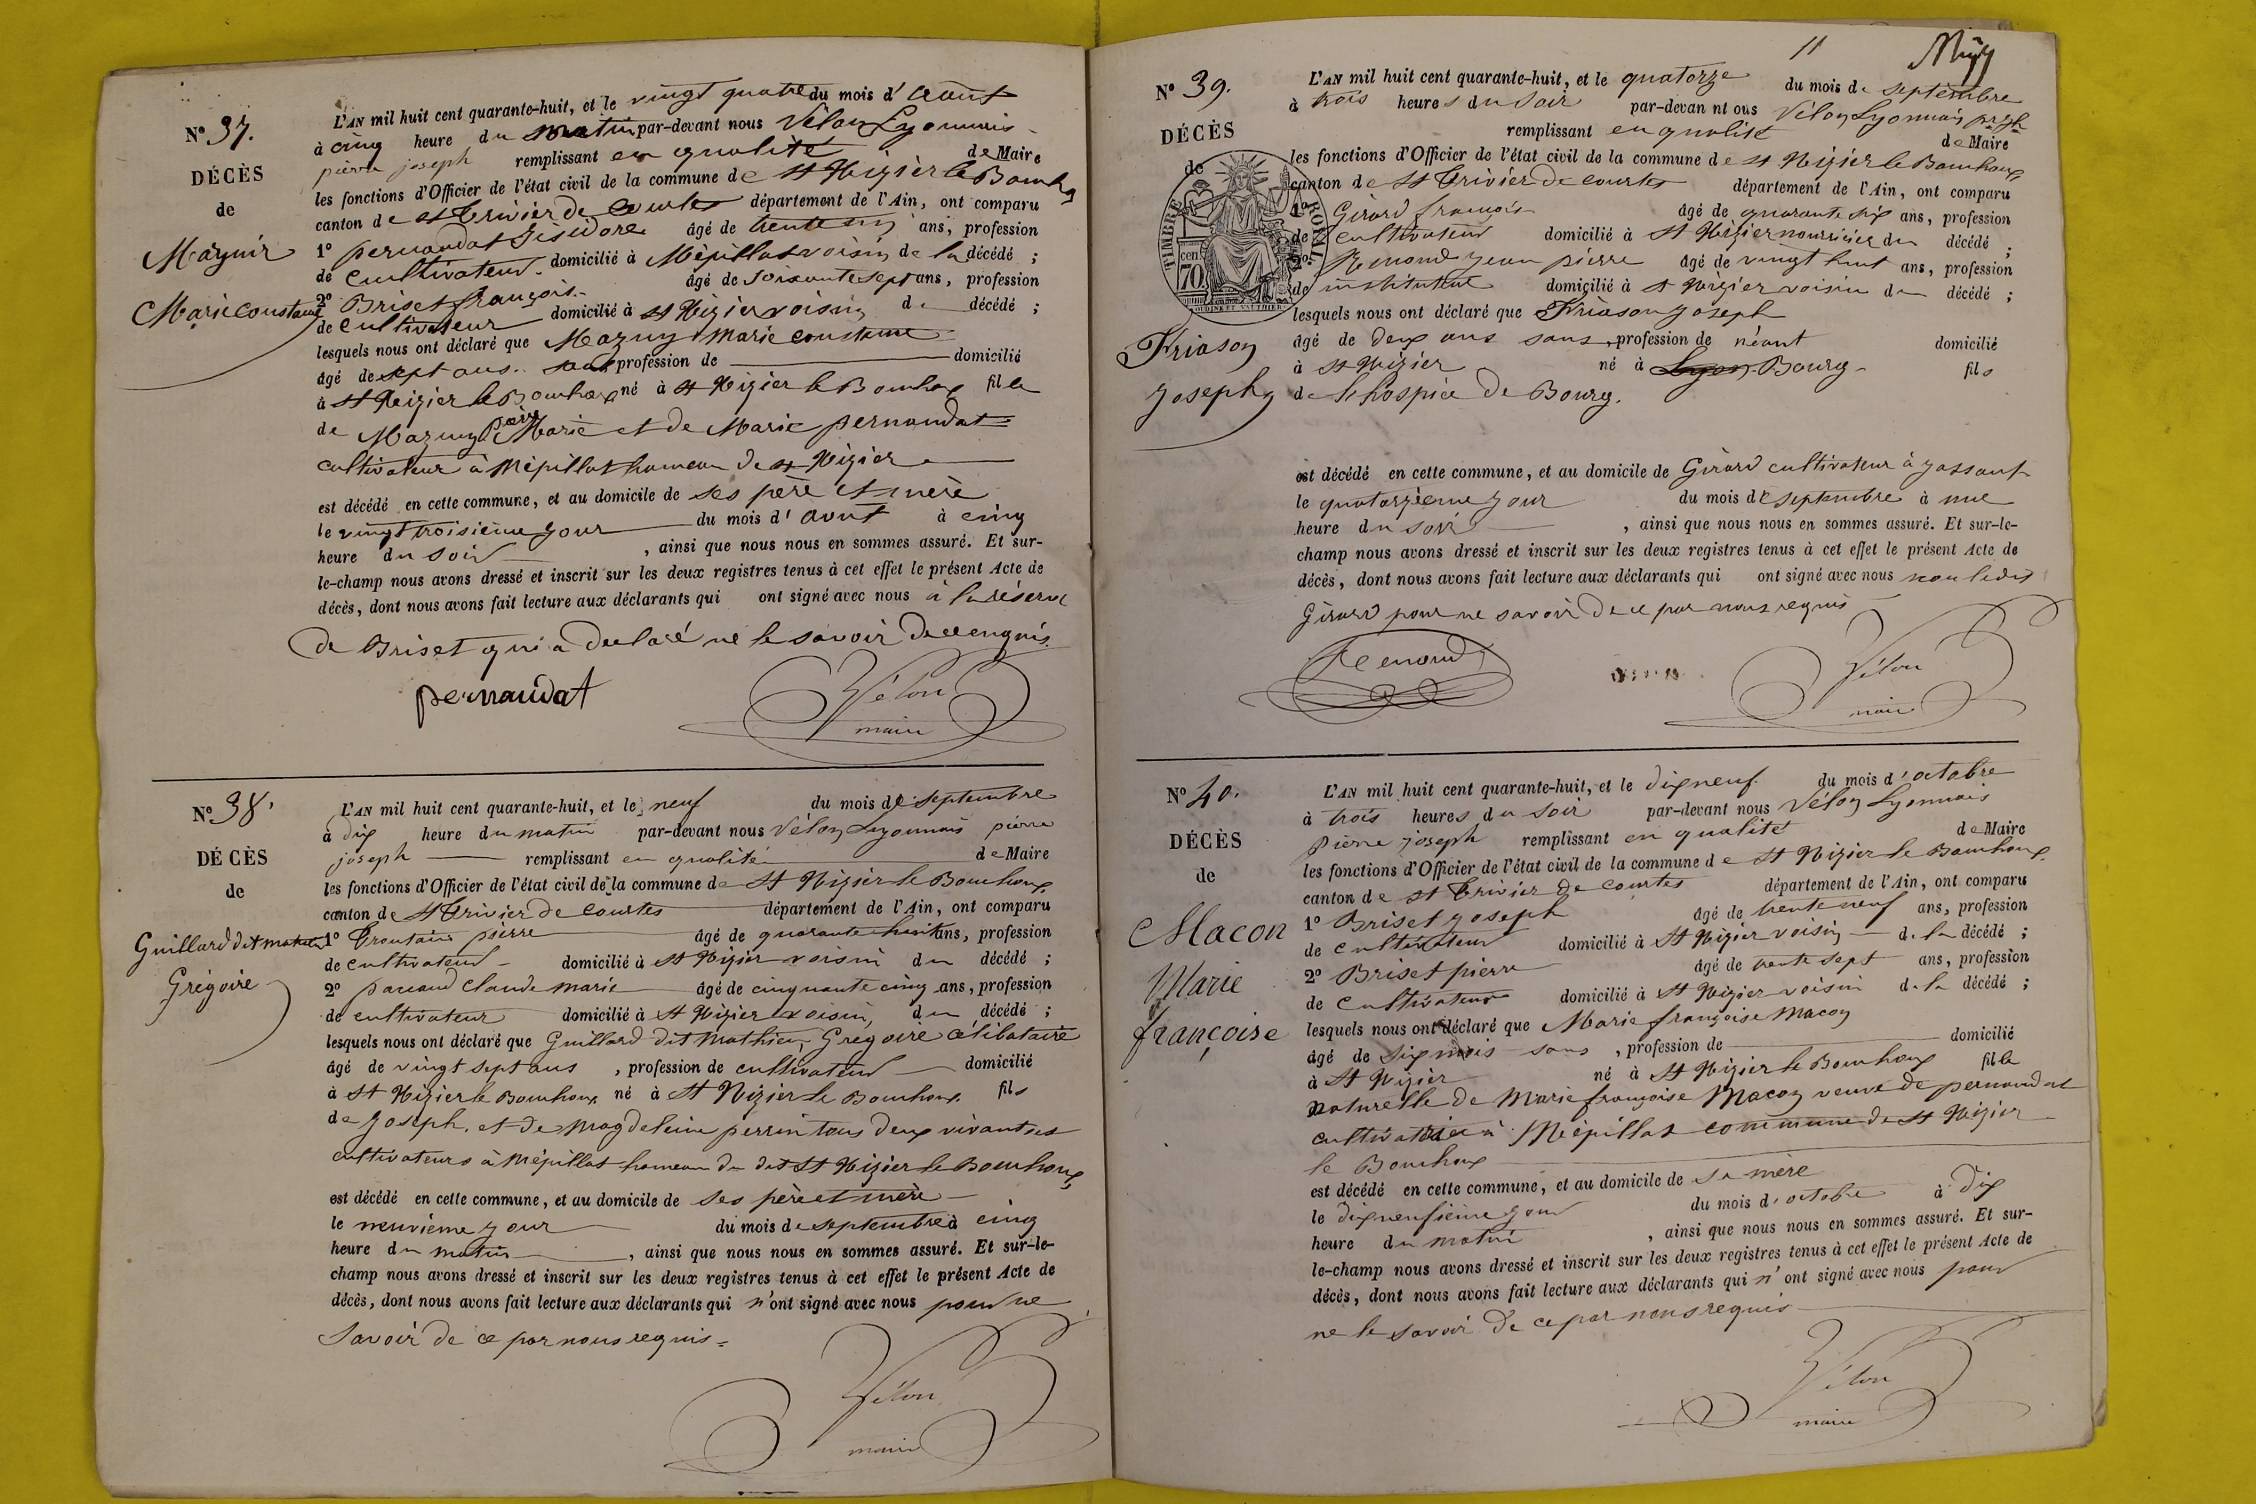 N° 37.
DÉCÈS
de
Mazuir
Marie constance
L'AN mil huit cent quarante-huit, et le vingt quatre du mois d'aout
à cinq heure du matin par-devant nous Vélon Lyonnais
pierre joseph remplissant en qualité de Maire
les fonctions d'Officier de l'état civil de la commune de St Nizier le Bouchoux
canton de St Trivier de Courtes département de l'Ain, ont comparu
1° pernaudat Isidore âgé de trente ans, profession
de cultivateur domicilié à Mépillat voisin de la décédé ;
2° Briset françois âgé de soixante sept ans, profession
de cultivateur domicilié à St Nizier voisin de décédé ;
lesquels nous ont déclaré que Mazuy Marie constance
âgé de sept ans sans profession de domicilié
à St Nizier le Bouchoux né à St Nizier le Bouchoux fille
de Mazuy Marie et de Marie pernaudat
cultivateur à Mépillat hameau de St Nizier
est décédé en cette commune, et au domicile de ses père et mère
le vingt troisième jour du mois d'aout à cinq
heure du soir , ainsi que nous nous en sommes assuré. Et sur-
le-champ nous avons dressé et inscrit sur les deux registres tenus à cet effet le présent Acte de
décès, dont nous avons fait lecture aux déclarants qui ont signé avec nous à la réserve
de Briset qui a declaré ne le savoir de ce enquis.
pernaudat Vélon
maire
N° 38.
DÉCÈS
de
Guillard dit mathieu
Grégoire
L'AN mil huit cent quarante-huit, et le neuf du mois de septembre
à dix heure du matin par-devant nous Vélon Lyonnais pierre
joseph remplissant en qualité de Maire
les fonctions d'Officier de l'état civil de la commune de St Nizier le Bouchoux
canton de St Trivier de Courtes département de l'Ain, ont comparu
1° pierre âgé de quarante huit ans, profession
de cultivateur domicilié à St Nizier voisin du décédé ;
2° claude marie âgé de cinquante cinq ans, profession
de cultivateur domicilié à St Nizier voisin du décédé ;
lesquels nous ont déclaré que Guillard dit Mathieu Grégoire célibataire
âgé de vingt sept ans , profession de cultivateur domicilié
à St Nizier le Bouchoux né à St Nizier le Bouchoux fils
de Joseph et de Magdeleine perrin tous deux vivants et
cultivateurs à Mépillat hameau du dit St Nizier le Bouchoux
est décédé en cette commune, et au domicile de ses père et mère
le neuvième jour du mois de septembre à cinq
heure du matin , ainsi que nous nous en sommes assuré. Et sur-le-
champ nous avons dressé et inscrit sur les deux registres tenus à cet effet le présent Acte de
décès, dont nous avons fait lecture aux déclarants qui n'ont signé avec nous pour ne
savoir de ce par nous requis
Vélon
maire
11
N° 39.
DÉCÈS
de
TIMBRE ROYAL
70 cen
Friason
Joseph
L'AN mil huit cent quarante-huit, et le quatorze du mois de septembre
à trois heures du soir par-devan nt ous Vélon Lyonnais
remplissant en qualité de Maire
les fonctions d'Officier de l'état civil de la commune de St Nizier le Bouchoux
canton de St Trivier de courtes département de l'Ain, ont comparu
1° Girard françois âgé de quarante six ans, profession
de cultivateur domicilié à St Nizier nourricier du décédé ;
2° Renaud jean pierre âgé de vingt huit ans, profession
de instituteur domicilié à St Nizier voisin du décédé ;
lesquels nous ont déclaré que Friason joseph
âgé de deux ans sans , profession de néant domicilié
à St Nizier né à Lyon Bourg fils
de l'hospice de Bourg.
est décédé en cette commune, et au domicile de Girard cultivateur à
le quatorzième jour du mois de septembre à une
heure du soir , ainsi que nous nous en sommes assuré. Et sur-le-
champ nous avons dressé et inscrit sur les deux registres tenus à cet effet le présent Acte de
décès, dont nous avons fait lecture aux déclarants qui ont signé avec nous non ledit
Girard pour ne savoir de ce par nous requis
Renaud Vélon
maire
N° 40.
DÉCÈS
de
Macon
Marie
françoise
L'AN mil huit cent quarante-huit, et le dix neuf du mois d'octobre
à trois heures du soir par-devant nous Vélon Lyonnais
Pierre joseph remplissant en qualité de Maire
les fonctions d'Officier de l'état civil de la commune de St Nizier le Bouchoux
canton de St Trivier de Courtes département de l'Ain, ont comparu
1° Briset joseph âgé de trente neuf ans, profession
de cultivateur domicilié à St Nizier voisin de la décédé ;
2° Briset pierre âgé de trente sept ans, profession
de cultivateur domicilié à St Nizier voisin de la décédé ;
lesquels nous ont déclaré que Marie françoise Macon
âgé de six mois sans , profession de domicilié
à St Nizier né à St Nizier le Bouchoux fille
naturelle de Marie françoise Macon veuve de pernaudat
cultivatrice à Mépillat commune de St Nizier
le Bouchoux
est décédé en cette commune, et au domicile de sa mère
le dix neufième jour du mois d'octobre à dix
heure du matin , ainsi que nous nous en sommes assuré. Et sur-
le-champ nous avons dressé et inscrit sur les deux registres tenus à cet effet le présent Acte de
décès, dont nous avons fait lecture aux déclarants qui n'ont signé avec nous pour
ne le savoir de ce par nous requis
Vélon
maire